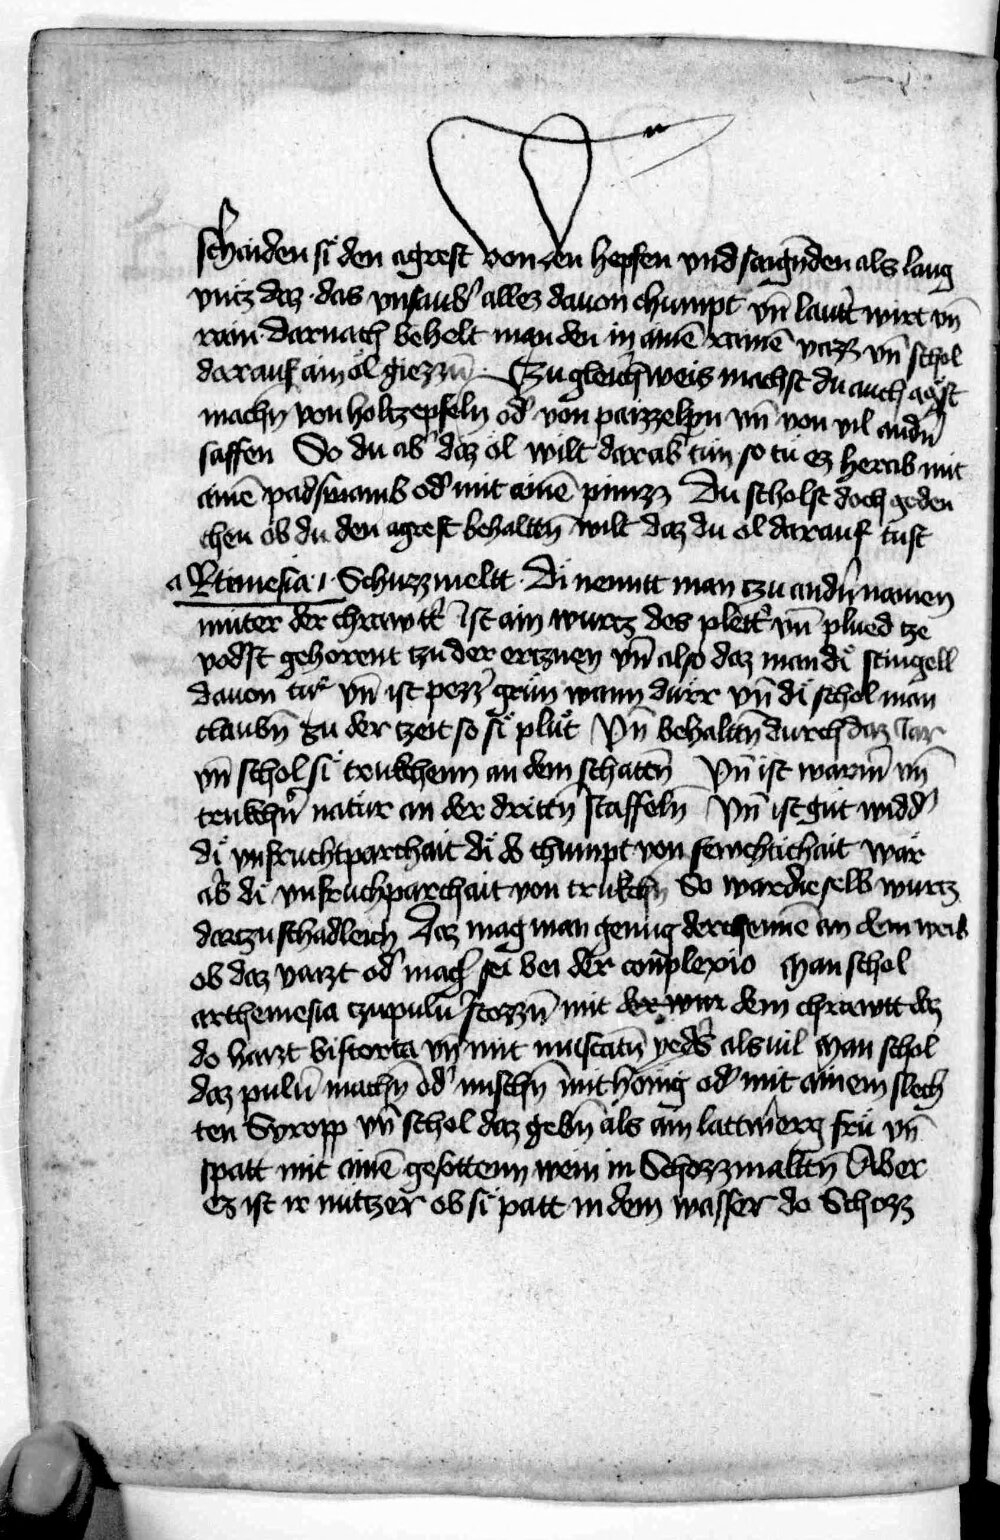 schaiden si den agrest von den hepfen vnd saign̄den als lang
vntz daz · das vnsaub' allez dauon chumpt vn̄ laut' wirt vn̄
rain · Darnach behelt man den in ainē rainē vazz vn̄ schol
darauf ain öl giezzn̄ · Zu gleich' weis machst du auch ag'st
machn̄ von holtzepfeln od' von parzzelpn vn̄ von vil andn̄
saffen So du ab' daz öl wilt darab tun so tu ez herab mit
ainē padswamb od' mit ainē pimzz Du scholst doch geden
chen ob du den agrest behalttn̄ wilt daz du öl darauf tust
a Rtimesia · i · Schuzzmeltt · Di nennt man tzu andn̄ namen
muter der chrawtt' Ist ain wurtz des plett' vn̄ plued tze
vodst gehorent tzu der ertzney vn̄ also daz man di stingell
dauon tut vn̄ ist pezz' grün wann dürr vn̄ di schol man
claubn̄ zu der tzeit so si plüt Vn̄ behalttn̄ durch daz Jar
vn̄ schol si trukchenn an dem schattn̄ Vn̄ ist warm' vn̄
trukchn' natur an der drittn̄ staffeln̄ Vn̄ ist gut widd'
di vnfruchtparchait di do chumpt von fewchtichait wär
ab' di vnfruchparchait von trukchn̄ So war die selb wurtz
dartzu schadleich Daz mag man genug derchennē an dem weib
ob daz vaizt od' mag' sei bei der conplexio Man schol
arthemesia tzupulu' stozzn̄ mit der wur dem chrawtt daz
do haizt bistorta vn̄ mit muscatn̄ yeds als vil Man schol
daz pulu' machn̄ od' mischn̄ mit hönig od' mit ainem slech
ten Syropp vn̄ schol daz gebn̄ als ain lattwerg fru vn̄
spatt mit ainē gesottenn wein in Schozzmalttn̄ Aber
ez ist ir nutzer ob si patt in dem wasser do Schozz